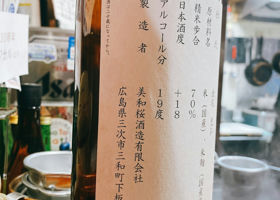 原材料名 米(国産)・米麹(国産
精米歩合 70%
日本酒度 +18
アルコール分 19度
製造者 美和桜酒造有限会社
広島県三次市三和町下板